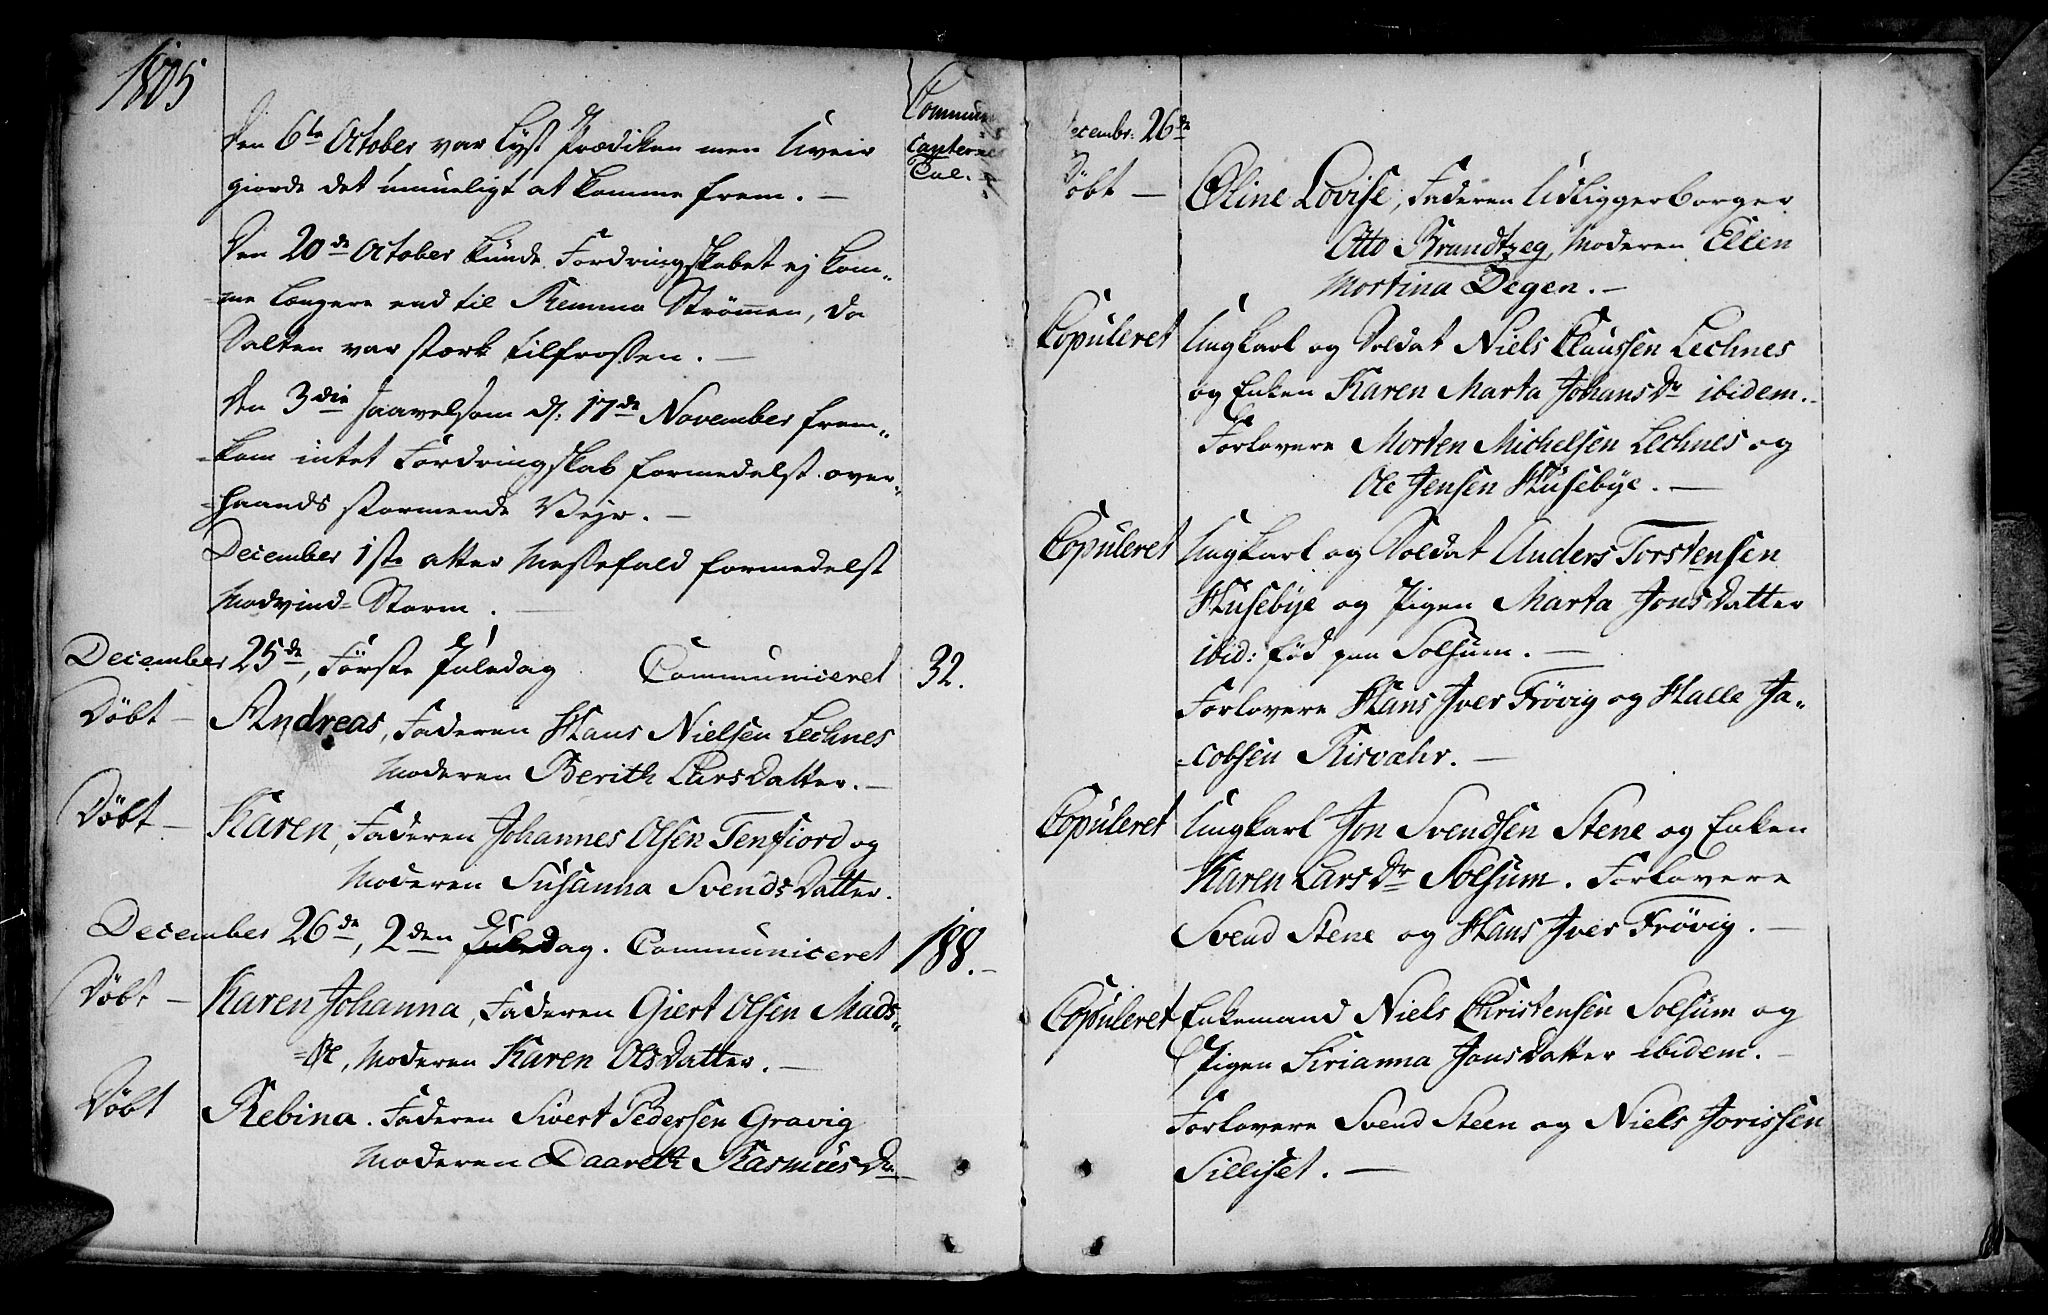 1805
Commun
canternes
Tal.
Den 6te October var lyst Prædiken men Uveir
giorde det umueligt at komme frem. –
Den 20de October kunde Fordringskabet ej kom„
„me længere end til Remma Strømmen, da
Salten var stærk tilfrossen. –
Den 3die saavelsom d: 17de November frem„
„kom intet Fordringskab formedelst over„
„haands stormende Vejr. –
December 1ste atter Messefald formedelst
Modvind=Storm. –
December 25de, Første Juledag Communiceret 32.
Døbt – Andreas, Faderen Hans Nielsen Lechnes
Moderen Berith LarsDatter. –
Døbt – Karen, Faderen Johannes Olsen Tenfiord og
Moderen Susanna SvendsDatter.
December 26de, 2den Juledag. Communiceret 188. –
Døbt – Karen Johanna, Faderen Giert Olsen Mads„
Moderen Karen OlsDatter. –
Døbt Rebina. Faderen Sivert Pedersen Gravig
Moderen Daareth RasmusDr
ecembr: 26de
Døbt – Oline Lovise, Faderen Udliggerborger
Otto Brandtzeg, Moderen Ellen
Martina Degen. –
Copuleret Ungkarl og Soldat Niels Claussen Lechnes
og Enken Karen Marta JohansDr ibidem. –
Forlovere Morten Michelsen Lechnes og
Ole Jensen Husebye. –
Copuleret Ungkarl og Soldat Anders Torstensen
Husebye og Pigen Marta JonsDatter
ibid: fød paa Solsum. –
Forlovere Hans Iver Frøvig og Halle Ja„
„cobsen Risvahr. –
Copuleret Ungkarl Jon Svendsen Stene og Enken
Karen LarsDr Solsum. Forlovere
Svend Stene og Hans Iver Frøvig. –
Copuleret Enkemand Niels Christensen Solsum og
Pigen Sirianna JonsDatter ibidem. –
Forlovere Svend Steen og Niels Jorissen
Silliset. –